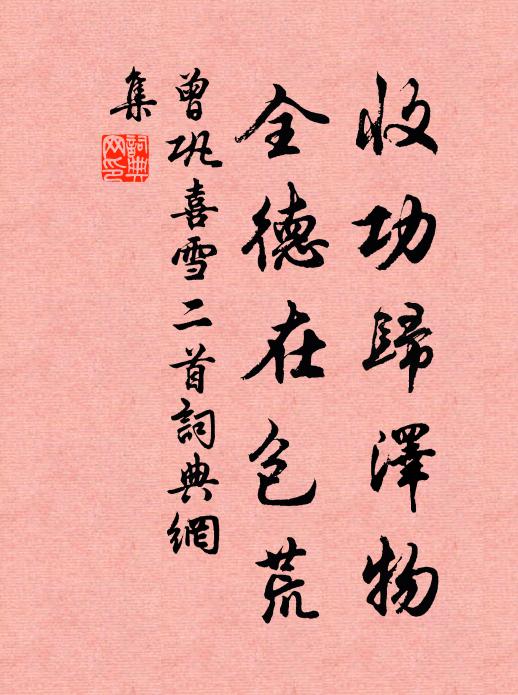 收功歸澤物
全德在包荒
曾巩喜雪二首詞典網
集
詞典
网印